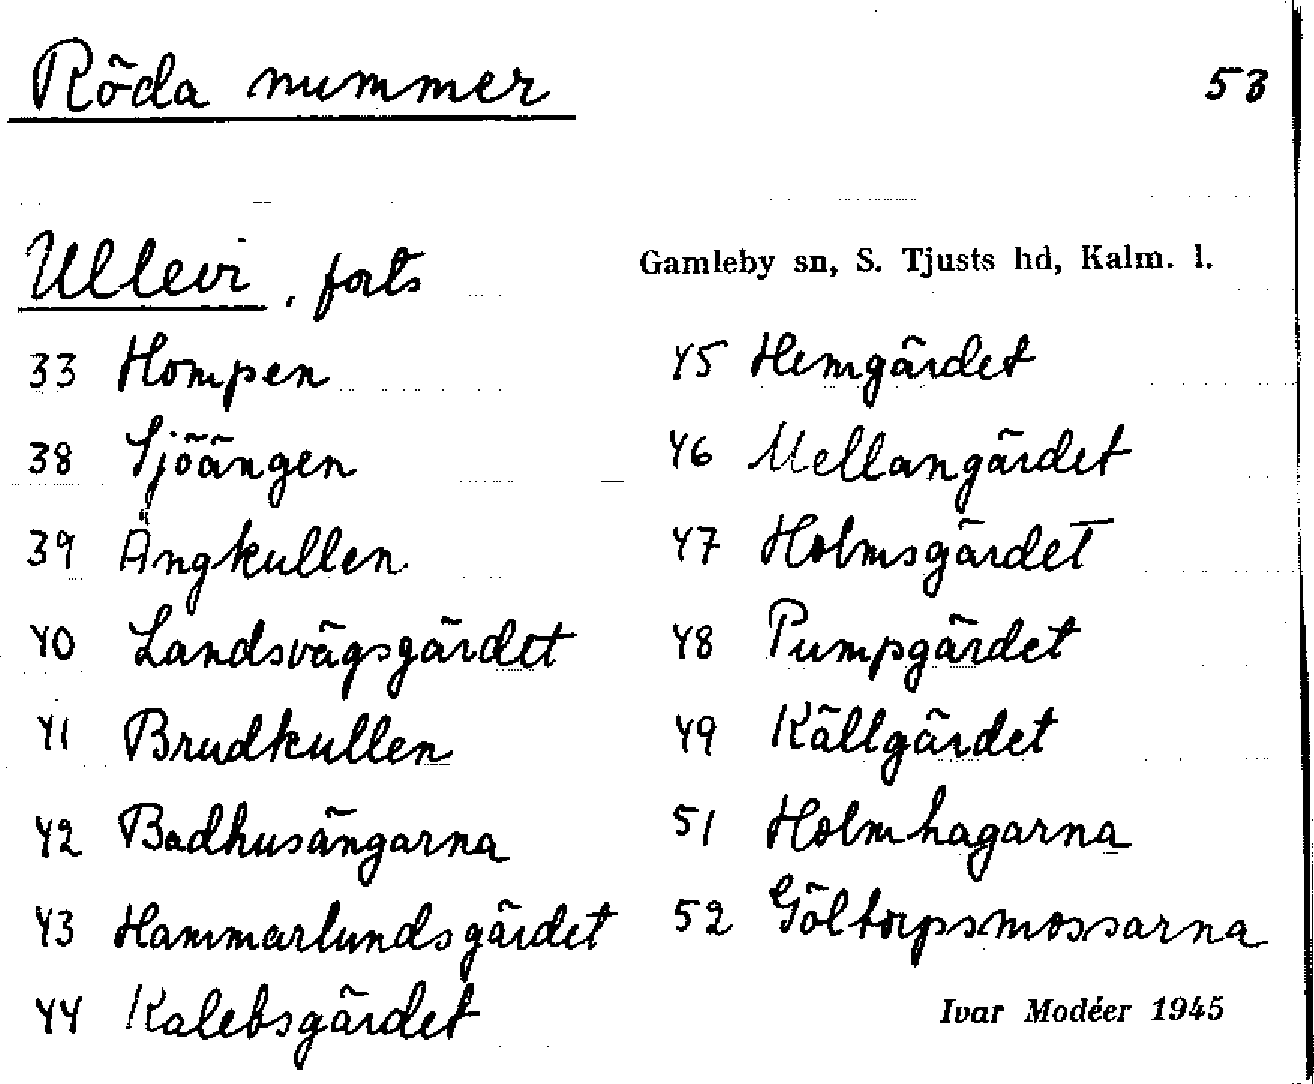 Röda nummer 53
Ullevi, forts
Gamleby sn, S. Tjusts hd, Kalm. l.
33 Hompen
38 Sjöängen
39 Ängkullen
40 Landsvägsgärdet
41 Brudkullen
42 Badhusängarna
43 Hammarlundsgärdet
44 Kalebsgärdet
45 Hemgärdet
46 Mellangärdet
47 Holmsgärdet
48 Pumpgärdet
49 Källgärdet
51 Holmhagarna
52 Göltorpsmossarna
Ivar Modéer 1945